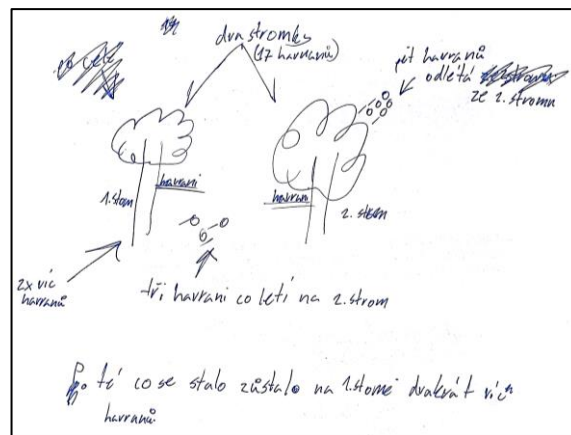 dva stromky
(17 havranů)
pět havranů
odlétá
ze 2. stromu
1. stom
havrani
havrani
2. strom
2x víc
havranů
tři havrani co letí na 2. strom
Po té co se stalo zůstalo na 1. stomě dvakrát víc
havranů